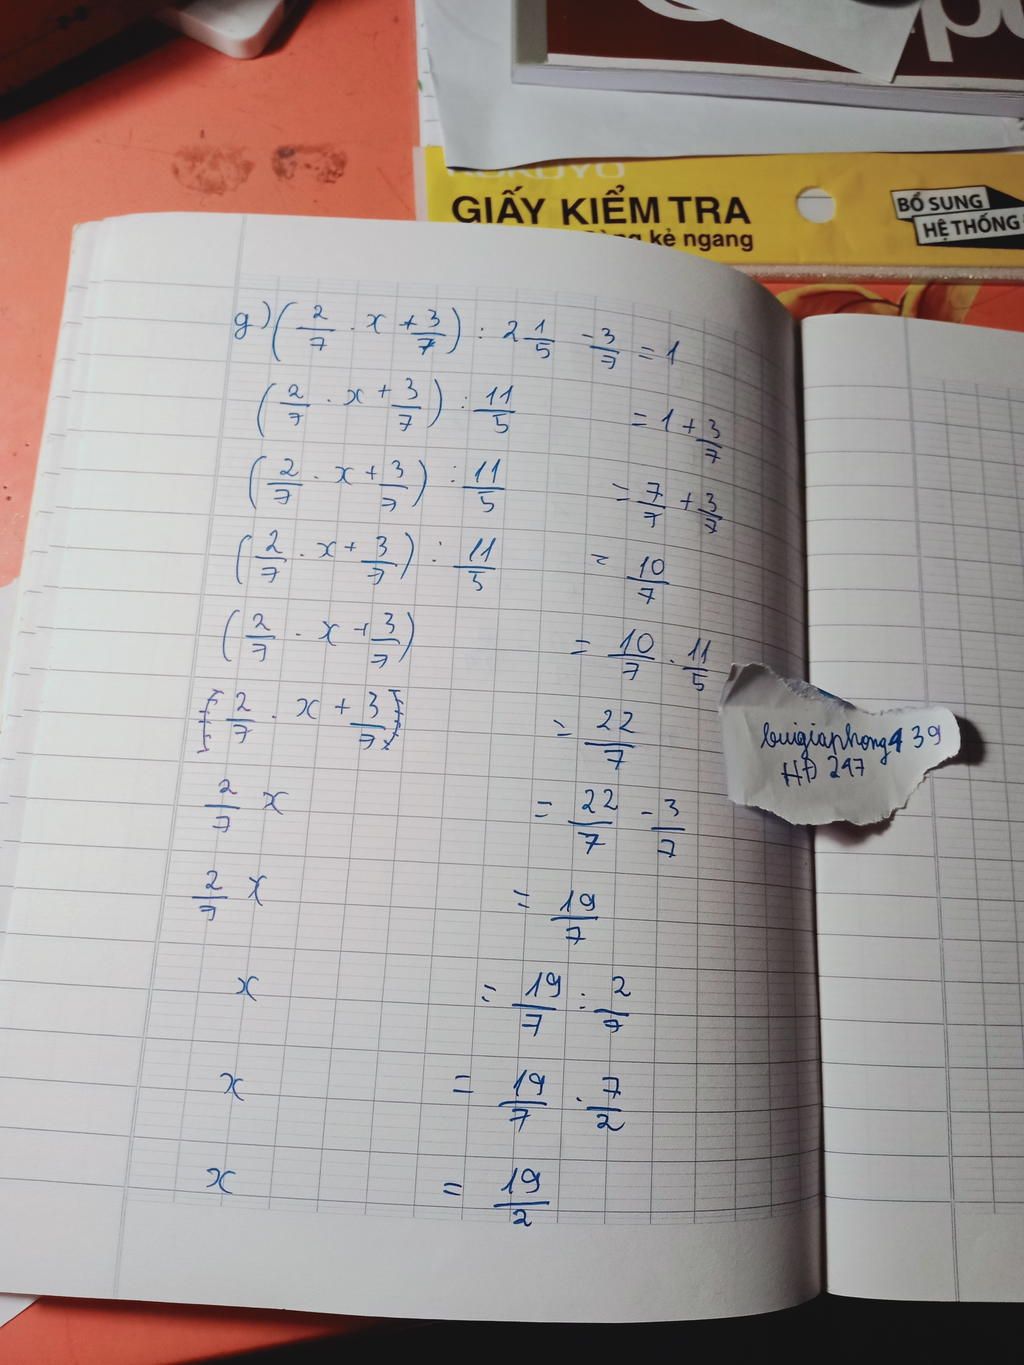 KOKUYO
GIẤY KIỂM TRA
kẻ ngang
BỔ SUNG
HỆ THỐNG
g) (2/7 . x + 3/7) : 2 1/5 - 3/7 = 1
(2/7 . x + 3/7) : 11/5 = 1 + 3/7
(2/7 . x + 3/7) : 11/5 = 7/7 + 3/7
(2/7 . x + 3/7) : 11/5 = 10/7
(2/7 . x + 3/7) = 10/7 . 11/5
2/7 . x + 3/7 = 22/7
2/7 x = 22/7 - 3/7
2/7 x = 19/7
x = 19/7 : 2/7
x = 19/7 . 7/2
x = 19/2
buigiaphong439
HĐ 247